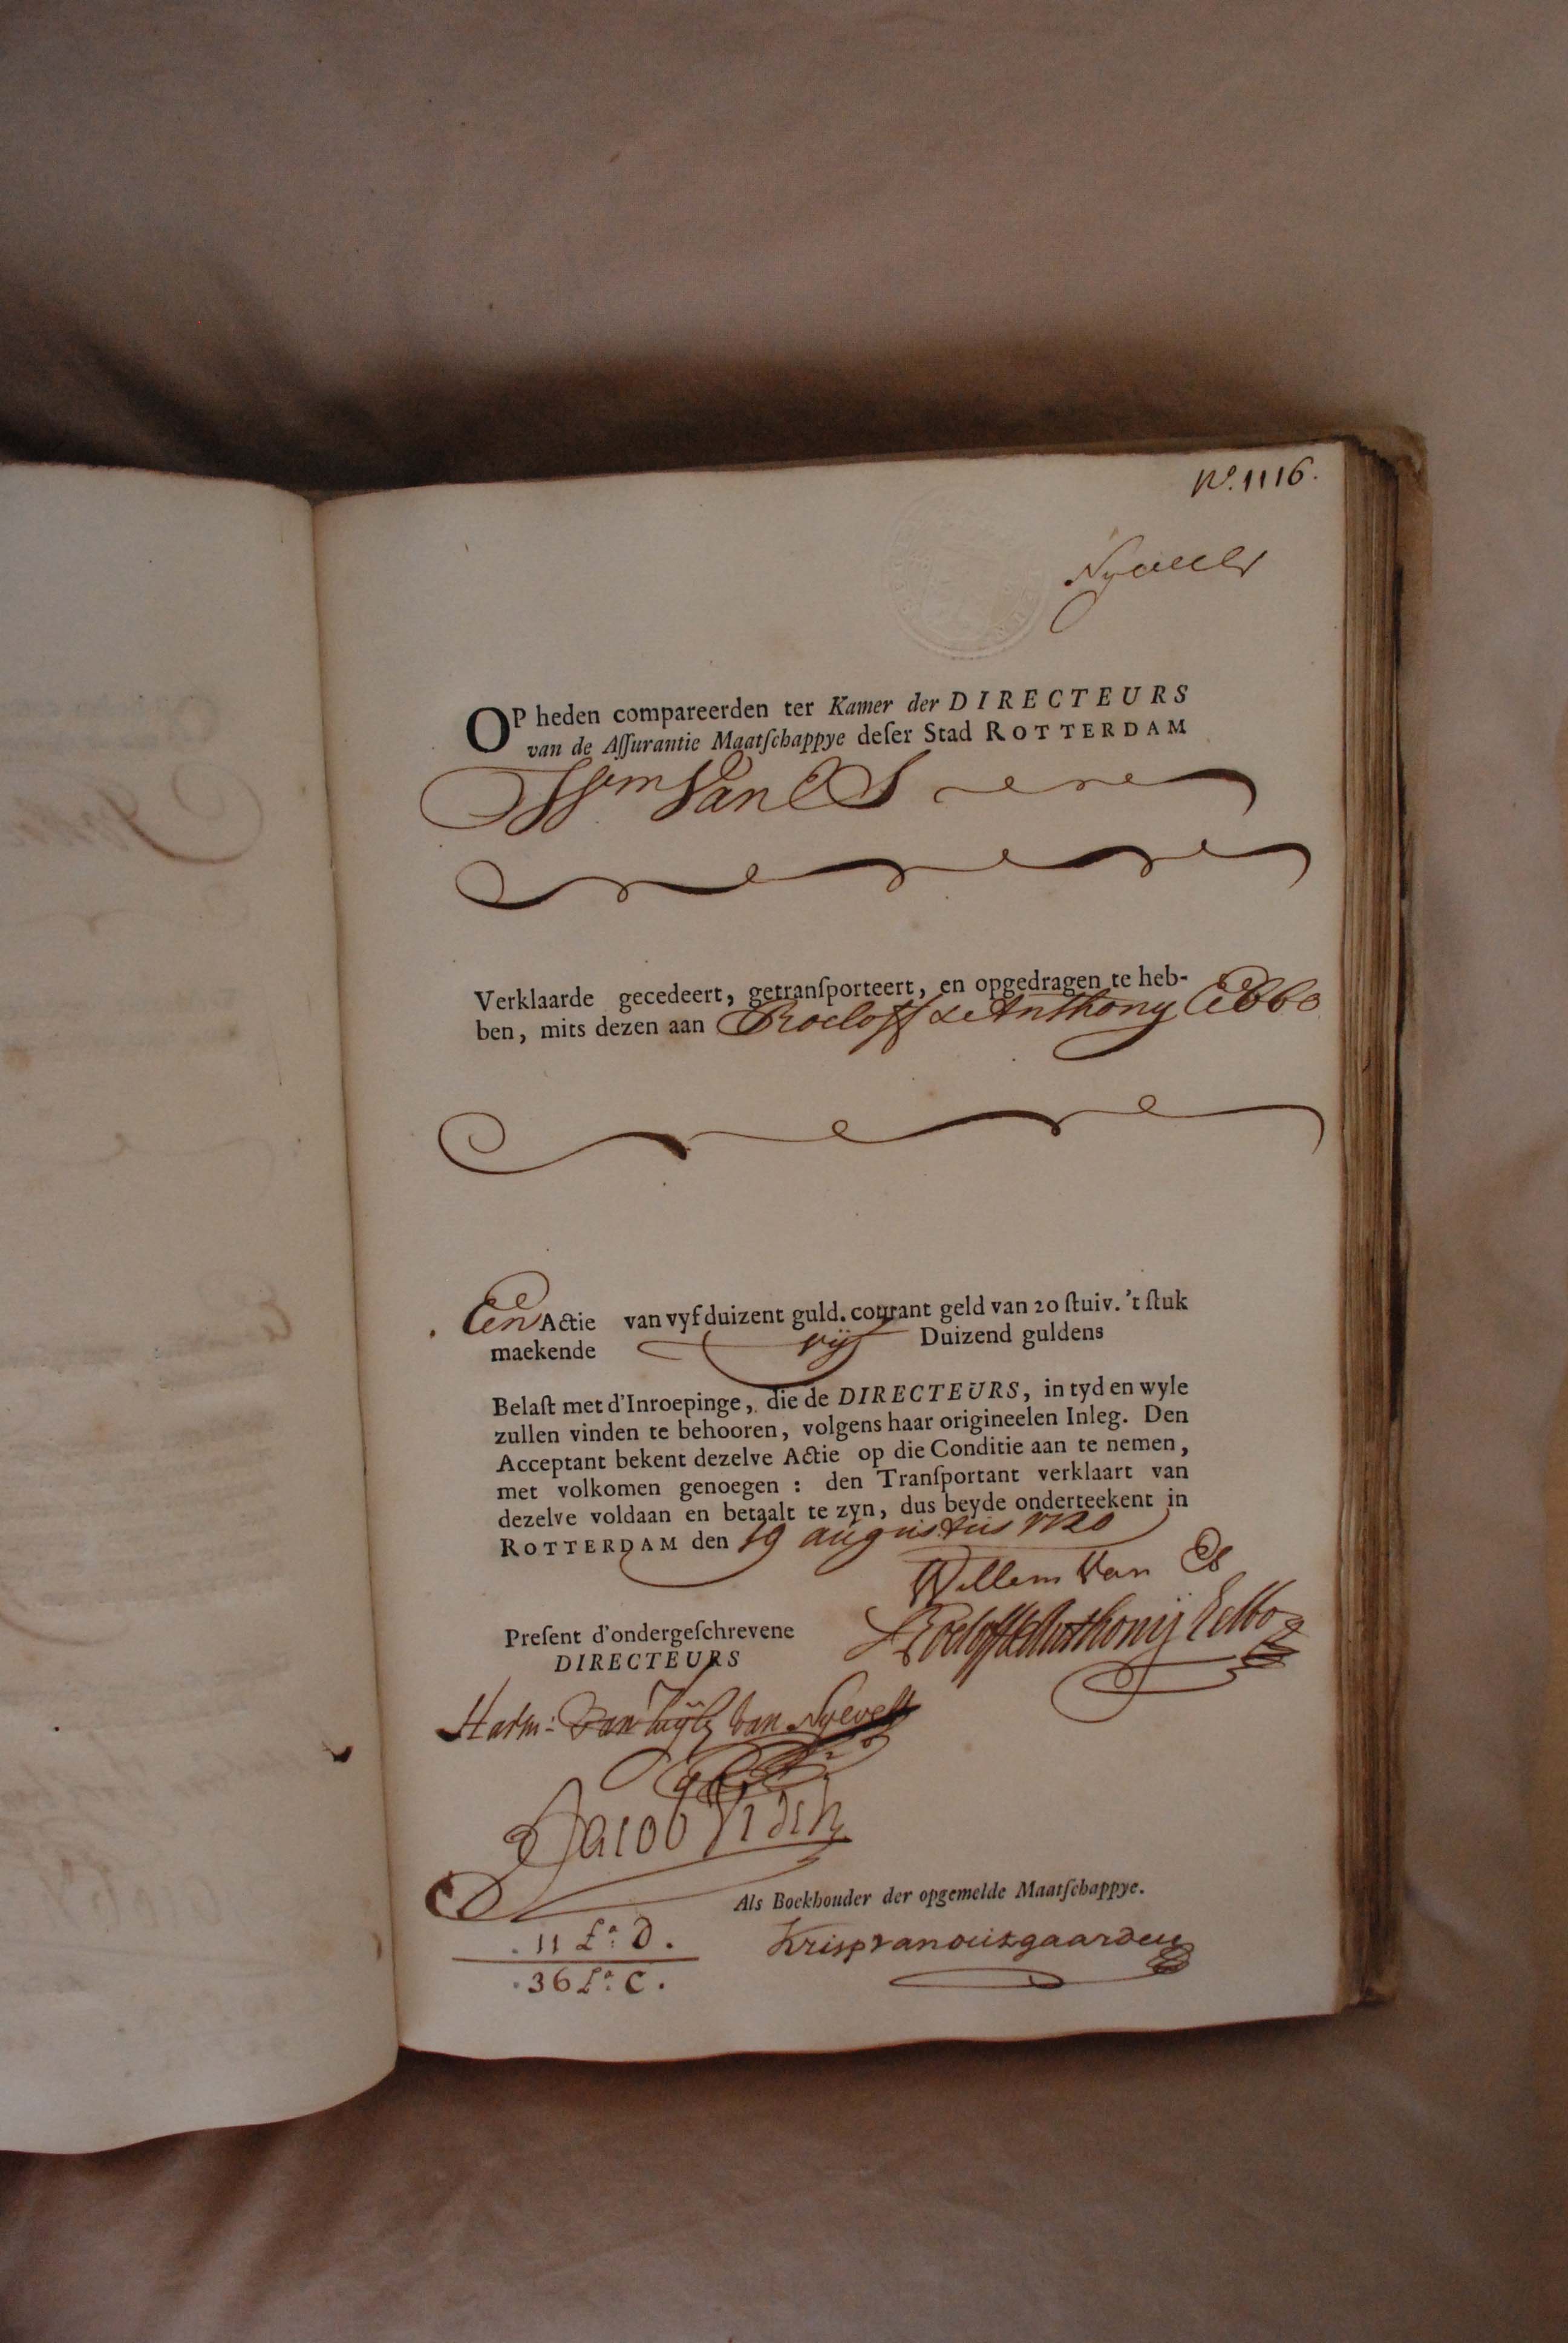 N.º 1116.
Nyevelt
OP heden compareerden ter Kamer der DIRECTEURS
van de Aſſurantie Maatſchappye deſer Stad ROTTERDAM
Wm. Van Es
Verklaarde gecedeert, getranſporteert, en opgedragen te heb-
ben, mits dezen aan Roeloff & Anthony Ebbo
Een Actie van vyf duizent guld. courant geld van 20 ſtuiv. 't ſtuk
maekende vijf Duizend guldens
Belaſt met d'Inroepinge, die de DIRECTEURS, in tyd en wyle
zullen vinden te behooren, volgens haar origineelen Inleg. Den
Acceptant bekent dezelve Actie op die Conditie aan te nemen,
met volkomen genoegen : den Tranſportant verklaart van
dezelve voldaan en betaalt te zyn, dus beyde onderteekent in
ROTTERDAM den 19 augustus 1720
Willem Van Es
Roeloff & Anthonij Ebbo
Preſent d'ondergeſchrevene
DIRECTEURS
Harm: van Zuijlen van Nyevelt
Jacob
Als Boekhouder der opgemelde Maatſchappye.
11 Lª: D.
Kris van outgaarden
36 Lª: C.